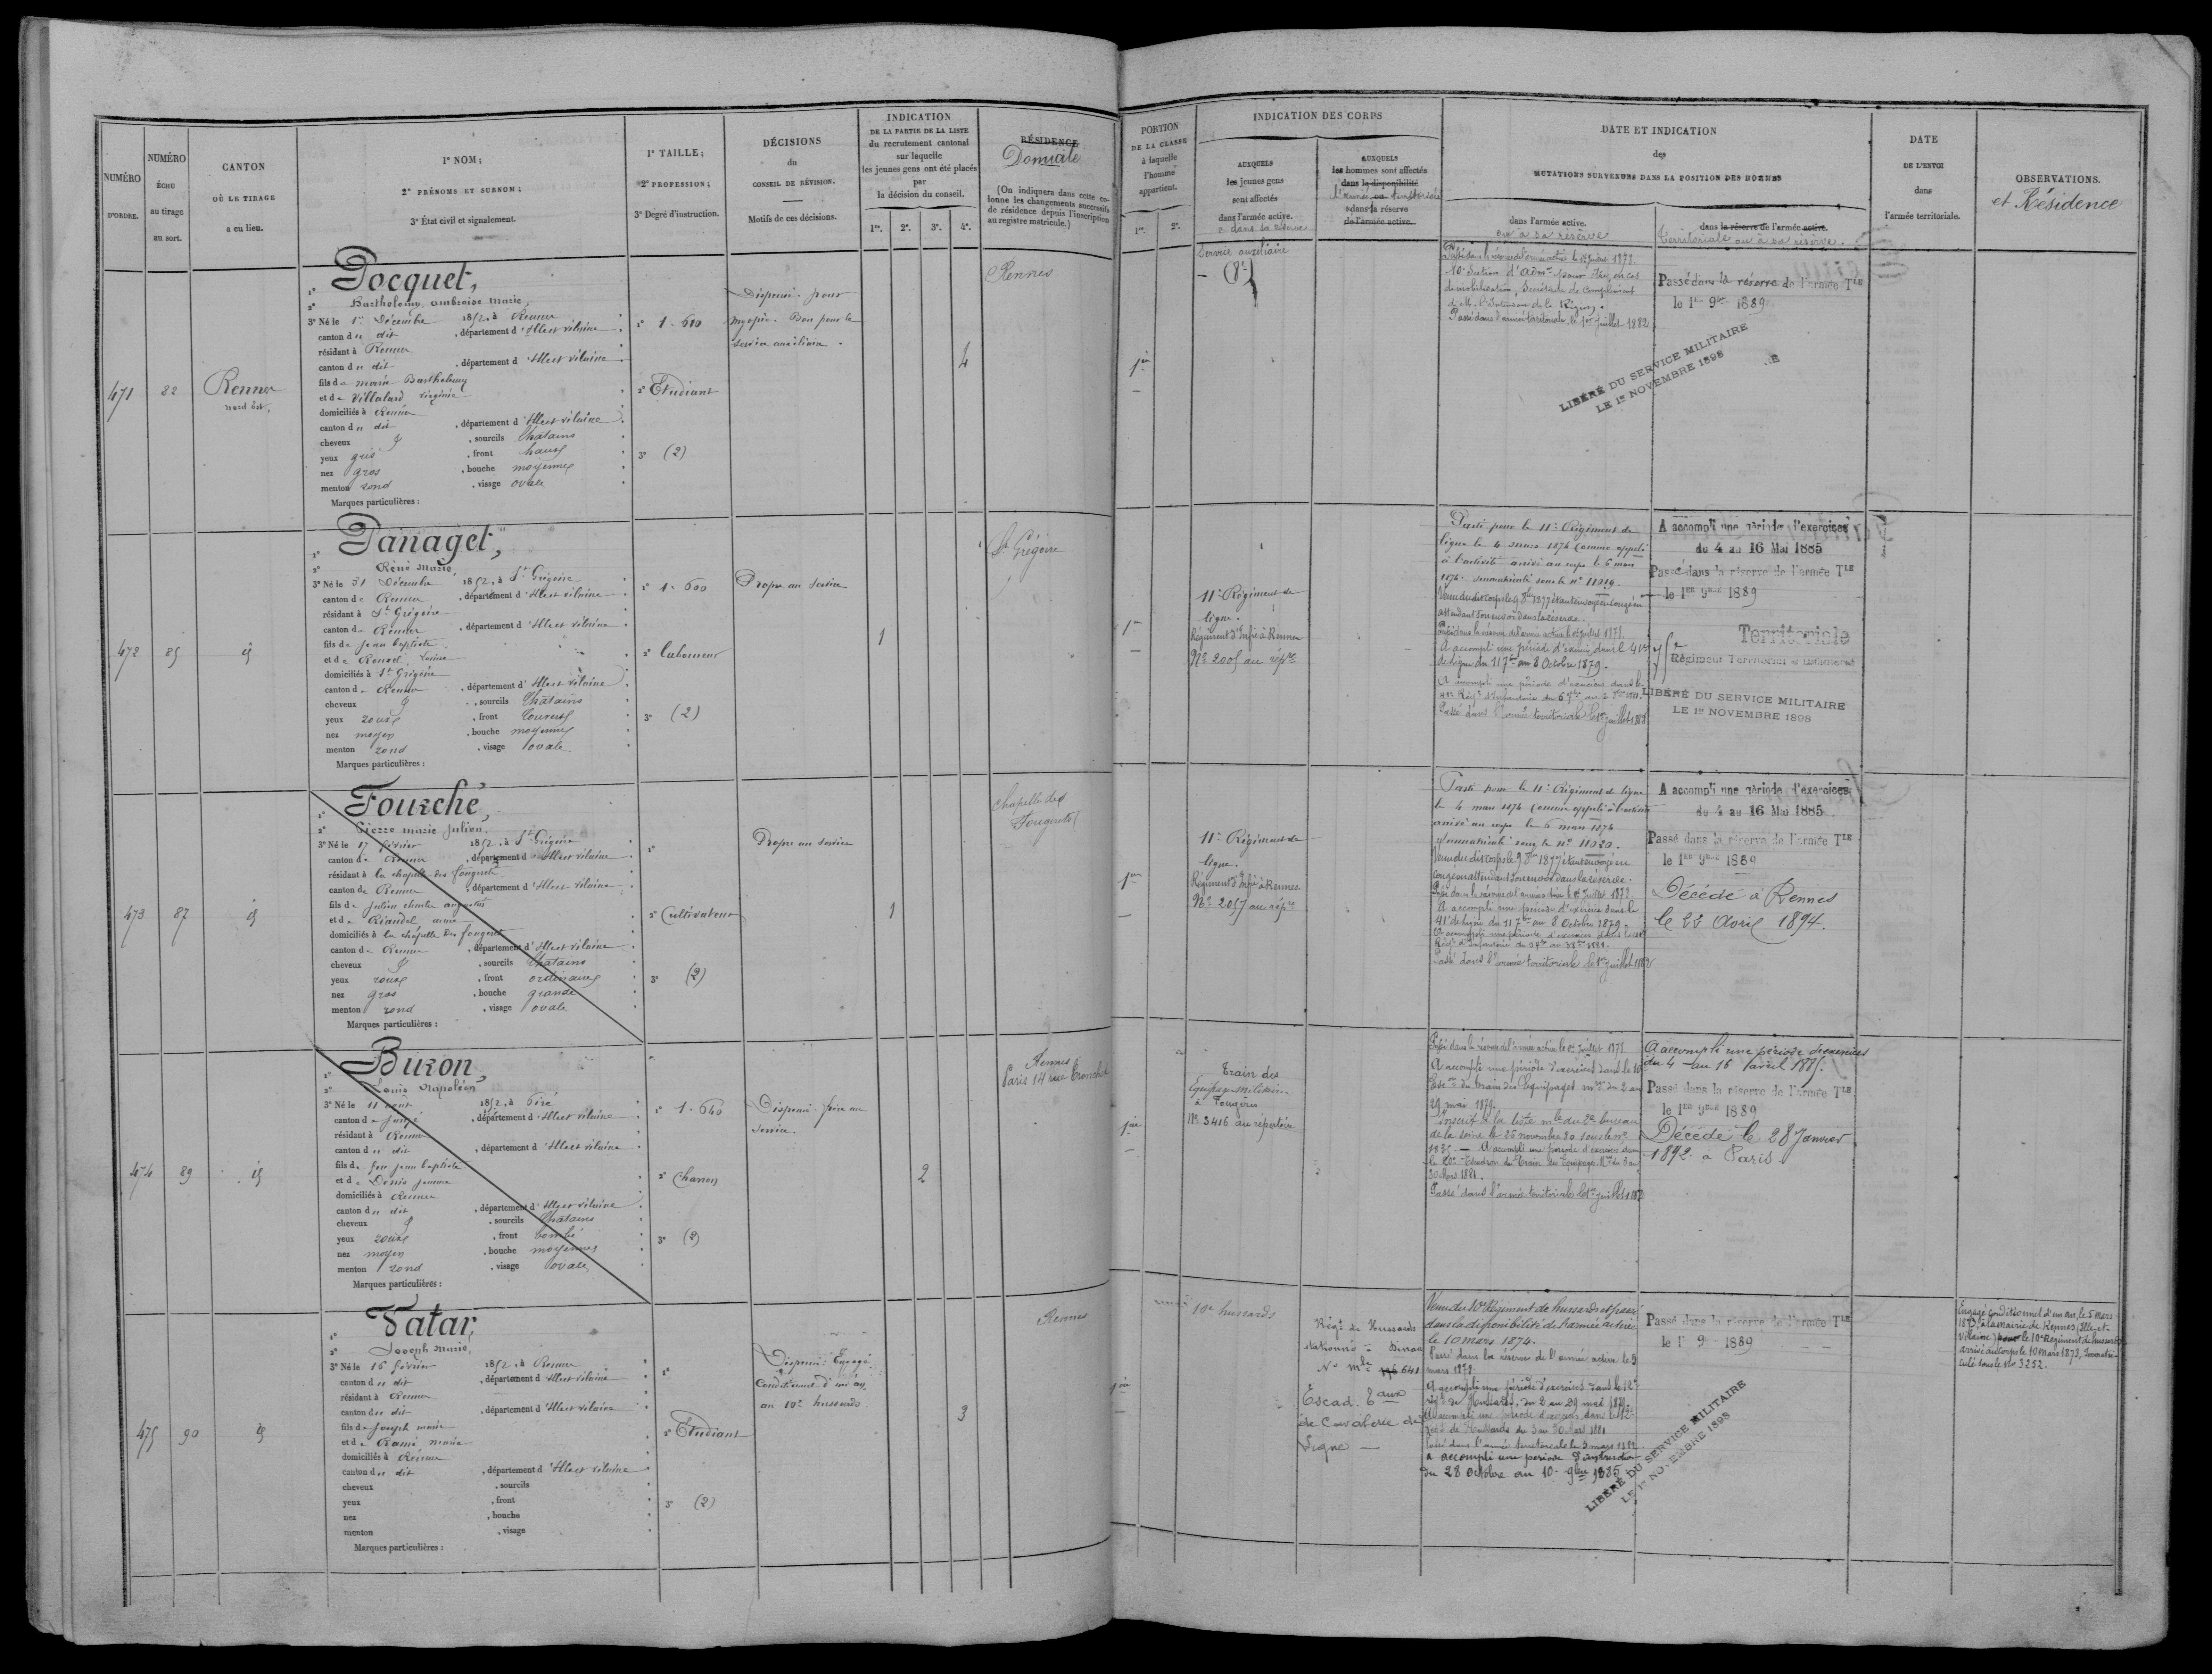 NUMÉRO
D'ORDRE.
NUMÉRO
ÉCHU
au tirage
au sort.
CANTON
OÙ LE TIRAGE
a eu lieu.
1° NOM;
2° PRÉNOMS ET SURNOM;
3° État civil et signalement.
1° TAILLE;
2° PROFESSION;
3° Degré d'instruction.
DÉCISIONS
du
CONSEIL DE RÉVISION.
Motifs de ces décisions.
INDICATION
DE LA PARTIE DE LA LISTE
du recrutement cantonal
sur laquelle
les jeunes gens ont été placés
par
la décision du conseil.
1re. 2e. 3e. 4e.
RÉSIDENCE
Domicile
(On indiquera dans cette co-
lonne les changements successifs
de résidence depuis l'inscription
au registre matricule.)
PORTION
DE LA CLASSE
à laquelle
l'homme
appartient.
1re. 2e.
INDICATION DES CORPS
AUXQUELS
les jeunes gens
sont affectés
dans l'armée active.
ou dans sa réserve
AUXQUELS
les hommes sont affectés
dans la disponibilité
l'armée territoriale
dans la réserve
de l'armée active.
DATE ET INDICATION
des
MUTATIONS SURVENUES DANS LA POSITION DES HOMMES
dans l'armée active.
ou à sa réserve
dans la réserve de l'armée active.
territoriale ou à sa réserve.
DATE
DE L'ENVOI
dans
l'armée territoriale.
OBSERVATIONS.
et Résidence
471
82
Rennes
nord Est,
1° Pocquet,
2° Barthelemy, ambroise Marie,
3° Né le 1er Décembre 1852, à Rennes
canton du dit, département d'Ille et vilaine
résidant à Rennes
canton du dit, département d'Ille et vilaine
fils de Marie Barthelemy
et de Villalard Virginie
domiciliés à Rennes
canton du dit, département d'Ille et vilaine
cheveux, sourcils Chatains
yeux gris, front haut
nez gros, bouche moyenne
menton rond, visage ovale
Marques particulières :
1° 1.610
2° Etudiant
3° (2)
Dispensé pour
myopie. Bon pour le
service auxiliaire.
4
Rennes
1ère
Service auxiliaire
Passé dans la réserve de l'armée active le 1er Juillet 1878.
Passé dans l'armée territoriale, le 1er juillet 1882
Passé dans la réserve de l'armée Tle
le 1er 9bre 1889
LIBÉRÉ DU SERVICE MILITAIRE
LE 1er NOVEMBRE 1898
472
85
id
1° Panaget,
2° René Marie
3° Né le 31 Décembre 1852, à St Grégoire
canton de Rennes, département d'Ille et vilaine
résidant à St Grégoire
canton de Rennes, département d'Ille et vilaine
fils de Jean baptiste
et de Rouxel
domiciliés à St Grégoire
canton de Rennes, département d'Ille et vilaine
cheveux, sourcils Chatains
yeux roux, front couvert
nez moyen, bouche moyenne
menton rond, visage ovale
Marques particulières :
1° 1.600
2° laboureur
3° (2)
Propre au service
1
St Grégoire
1ère
11e Régiment de
ligne.
Régiment d'Infie à Rennes
No 2005 au répre
Parti pour le 11e Régiment de
ligne le 4 mars 1874 comme appelé
à l'activité arrivé au corps le 6 mars
1874. immatriculé sous le n° 11019.
Venu du dit corps le 9 8bre 1877 étant envoyé en congé en
attendant son envoi dans la réserve.
Passé dans la réserve de l'armée active le 1er juillet 1878.
A accompli une période d'exercice dans le 41e
de ligne du 11 7bre au 8 Octobre 1879.
A accompli une période d'exercices dans le
Passé dans l'armée territoriale le 1er juillet 1882
A accompli une période d'exercices
du 4 au 16 Mai 1885
Passé dans la réserve de l'armée Tle
le 1er 9bre 1889
Territoriale
75e
Régiment Territorial d'Infanterie
LIBÉRÉ DU SERVICE MILITAIRE
LE 1er NOVEMBRE 1898
473
87
id
1° Fourché,
2° Pierre marie Julien.
3° Né le 17 février 1852, à St Grégoire
canton de Rennes, département d'Ille et vilaine
résidant à la chapelle des fougeretz
canton de Rennes, département d'Ille et vilaine
fils de Julien charles augustin
et de Riaudel anne
domiciliés à la chapelle des fougeretz
canton de Rennes, département d'Ille et vilaine
cheveux, sourcils Chatains
yeux roux, front ordinaire
nez gros, bouche grande
menton rond, visage ovale
Marques particulières :
1°
2° Cultivateur
3° (2)
Propre au service
1
Chapelle des
Fougeretz
1ère
11e Régiment de
ligne.
Régiment d'Infie à Rennes.
No 2057 au répre
Parti pour le 11e Régiment de ligne
le 4 mars 1874 comme appelé à l'activité
arrivé au corps le 6 mars 1874
immatriculé sous le n° 11020.
Venu du dit corps le 9 8bre 1877 étant envoyé en
congé en attendant son envoi dans la réserve.
Passé dans la réserve de l'armée active le 1er Juillet 1878.
A accompli une période d'exercice dans le
41e de ligne du 11 7bre au 8 Octobre 1879.
Passé dans l'armée territoriale le 1er juillet 1882
A accompli une période d'exercices
du 4 au 16 Mai 1885
Passé dans la réserve de l'armée Tle
le 1er 9bre 1889
Décédé à Rennes
le 22 Avril 1894.
474
89
id
1° Buron,
2° Louis Napoléon
3° Né le 11 août 1852, à Piré
canton de Janzé, département d'Ille et vilaine
résidant à Rennes
canton du dit, département d'Ille et vilaine
fils de feu Jean baptiste
et de Denis Jeanne
domiciliés à Rennes
canton du dit, département d'Ille et vilaine
cheveux, sourcils Chatains
yeux roux, front bombé
nez moyen, bouche moyenne
menton rond, visage ovale
Marques particulières :
1° 1.640
2° Charron
3° (2)
Dispensé. frère au
service.
2
Rennes
Paris 14 rue Tronchet
1ère
Train des
Equipages militaires
à Fougères
No 3416 au répertoire
Passé dans la réserve de l'armée active le 1er juillet 1878
A accompli une période d'exercices dans le 10e
Escon du train des Equipages mres du 2 au
29 mai 1879.
Inscrit à la liste mle du 2e bureau
de la Seine le 25 novembre 80 sous le n°
A accompli une période d'exercices dans
le 20e Escadron du Train des Equipages Mres du 3 au
30 Mars 1881.
Passé dans l'armée territoriale le 1er juillet 1882
A accompli une période d'exercices
du 4 au 16 avril 1885.
Passé dans la réserve de l'armée Tle
le 1er 9bre 1889
Décédé le 28 Janvier
1892 à Paris
475
90
id
1° Vatar,
2° Joseph Marie,
3° Né le 16 février 1852, à Rennes
canton du dit, département d'Ille et vilaine
résidant à Rennes
canton du dit, département d'Ille et vilaine
fils de Joseph marie
et de Ramé marie
domiciliés à Rennes
canton du dit, département d'Ille et vilaine
cheveux, sourcils
yeux, front
nez, bouche
menton, visage
Marques particulières :
1°
2° Etudiant
3° (2)
Dispensé: Engagé
Conditionnel d'un an,
au 10e hussards.
3
Rennes
1ère
10e hussards
Régt de Hussards
stationné à Dinan
No mle 641
Escad. Eaux
de Cavalerie de
Ligne
Venu du 10e Régiment de hussards et passé
dans la disponibilité de l'armée active
le 10 mars 1874.
Passé dans la réserve de l'armée active le 5
mars 1878.
A accompli une période d'exercices dans le 12e
régt de Hussards, du 2 au 29 mai 1879.
A accompli une période d'exercices dans le 12e
régt de Hussards du 3 au 30 Mars 1881
Passé dans l'armée territoriale le 5 mars 1882.
a accompli une période d'instruction
du 28 octobre au 10 9bre 1885
Passé dans la réserve de l'armée Tle
le 1er 9bre 1889
LIBÉRÉ DU SERVICE MILITAIRE
LE 1er NOVEMBRE 1898
Engagé conditionnel d'un an, le 5 mars
1873, à la mairie de Rennes, (Ille-et-
Vilaine) pour le 10e Régiment de hussards
arrivé au corps le 10 mars 1873, Immatri-
culé sous le No 3252.